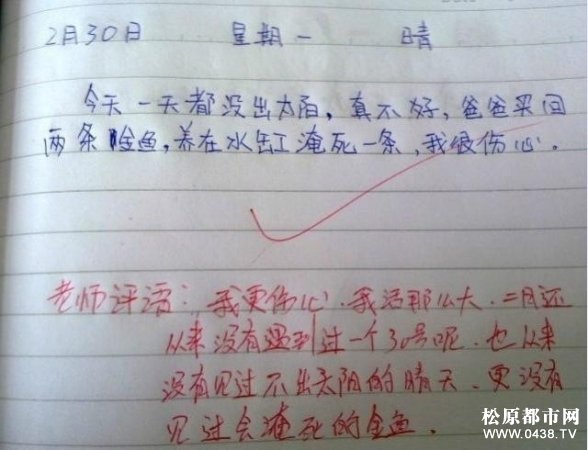 2月30日 星期一 晴
今天一天都没出太阳，真不好，爸爸买回
两条金鱼，养在水缸淹死一条，我很伤心。
老师评语：我更伤心．我活那么大．二月还
从来没有遇到过一个30号呢．也从来
没有见过不出太阳的晴天．更没有
见过会淹死的金鱼．
松原都市网
www.0438.TV